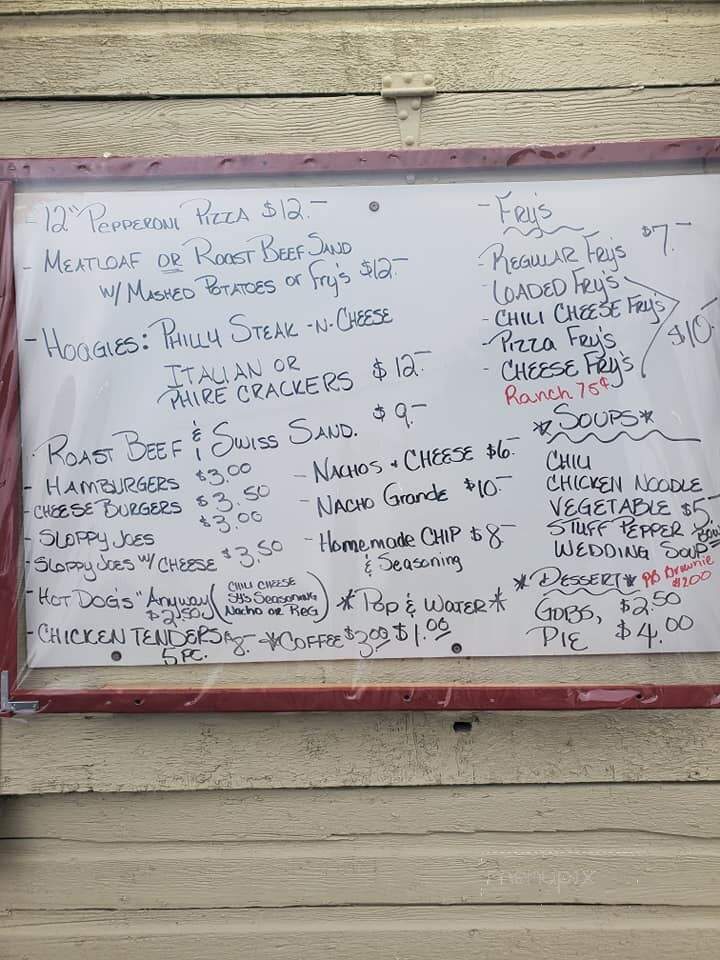 - 12" PEPPERONI PIZZA $12.-
- MEATLOAF OR ROAST BEEF SAND
W/ MASHED POTATOES or Fry's $12.-
- HOAGIES: PHILLY STEAK -N- CHEESE
ITALIAN OR
PHIRE CRACKERS $12.-
ROAST BEEF & SWISS SAND. $9.-
- HAMBURGERS $3.00
- CHEESE BURGERS $3.50
- SLOPPY JOES $3.00
- SLOPPY JOES W/ CHEESE $3.50
- HOT DOG'S "Anyway (CHILI CHEESE
$2.50 SYS SEASONING
Nacho or REG)
- CHICKEN TENDERS 8.-
5 PC.
- NACHOS & CHEESE $6.-
- NACHO Grande $10.-
- Homemade CHIP $8-
& Seasoning
* Pop & WATER *
* COFFEE $3.00 $1.00
- Fry's
- REGULAR Fry's $7.-
- LOADED Fry's
- CHILI CHEESE Fry's
- Pizza Fry's $10.-
- CHEESE Fry's
Ranch 75¢
* SOUPS *
CHILI
CHICKEN NOODLE
VEGETABLE $5-
STUFF PEPPER Bowl
WEDDING SOUP
* DESSERT * PB Brownie
$2.00
GOBS, $2.50
PIE $4.00
menupix